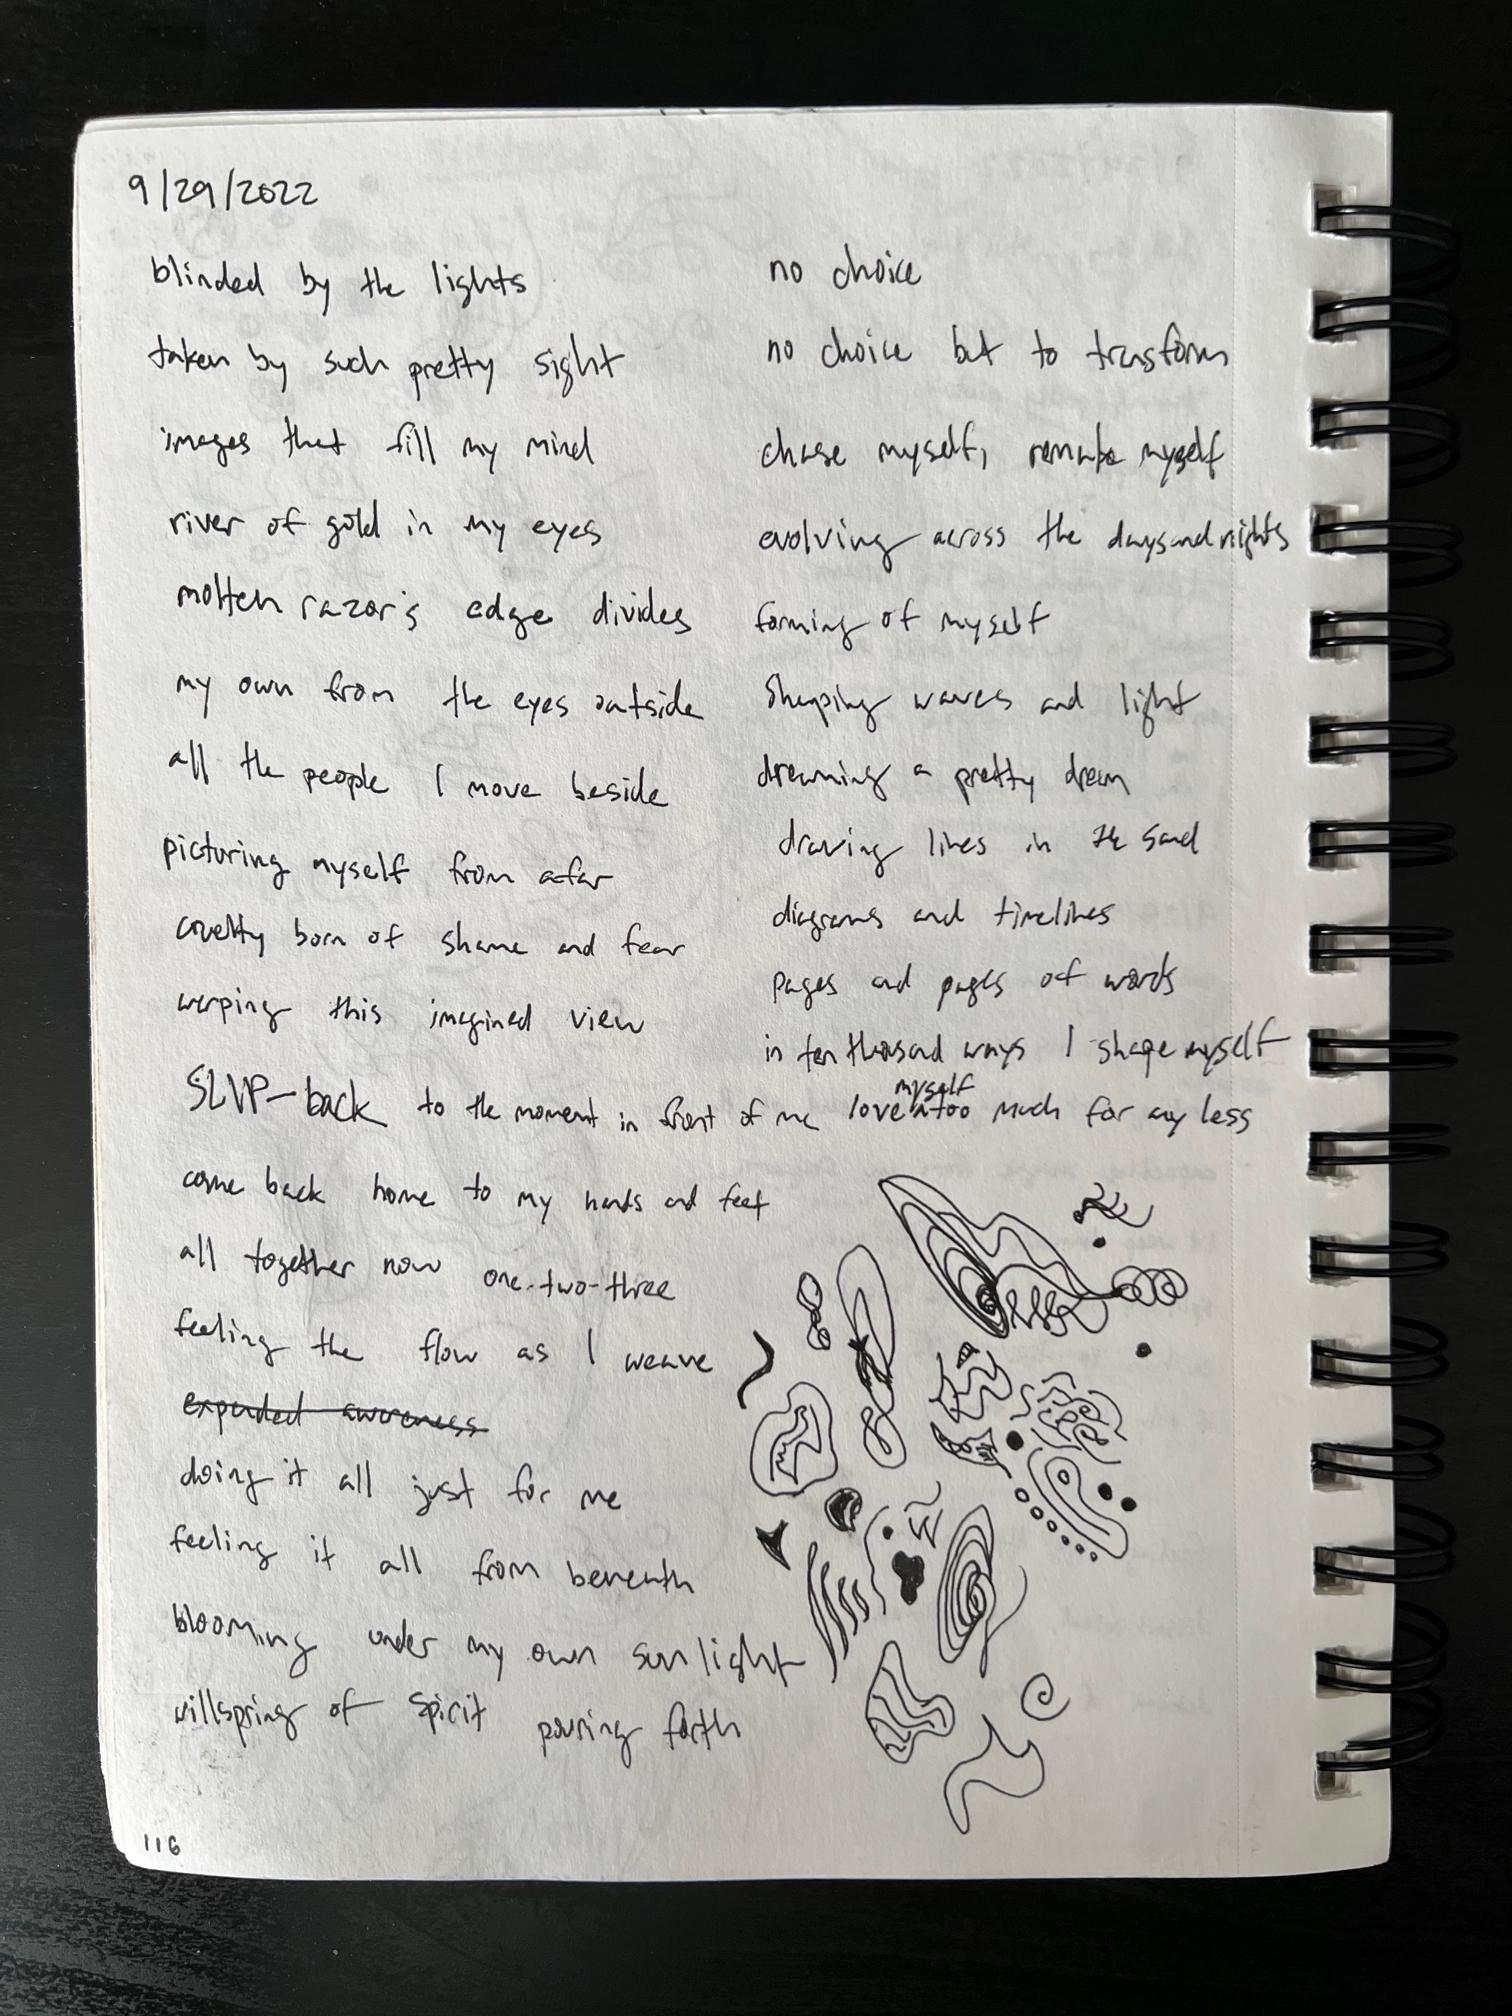 9/29/2022
blinded by the lights
taken by such pretty sight
images that fill my mind
river of gold in my eyes
molten razor's edge divides
my own from the eyes outside
all the people I move beside
picturing myself from afar
cruelty born of shame and fear
warping this imagined view
SLVP-back to the moment in front of me
come back home to my hands and feet
all together now one-two-three
feeling the flow as I weave
expanded awareness
doing it all just for me
feeling it all from beneath
blooming under my own sunlight
willspring of spirit pouring forth
no choice
no choice but to transform
chase myself, remake myself
evolving across the days and nights
forming of myself
shaping waves and light
dreaming a pretty dream
drawing lines in the sand
diagrams and timelines
pages and pages of words
in ten thousand ways I shape myself
love myself too much for any less
116